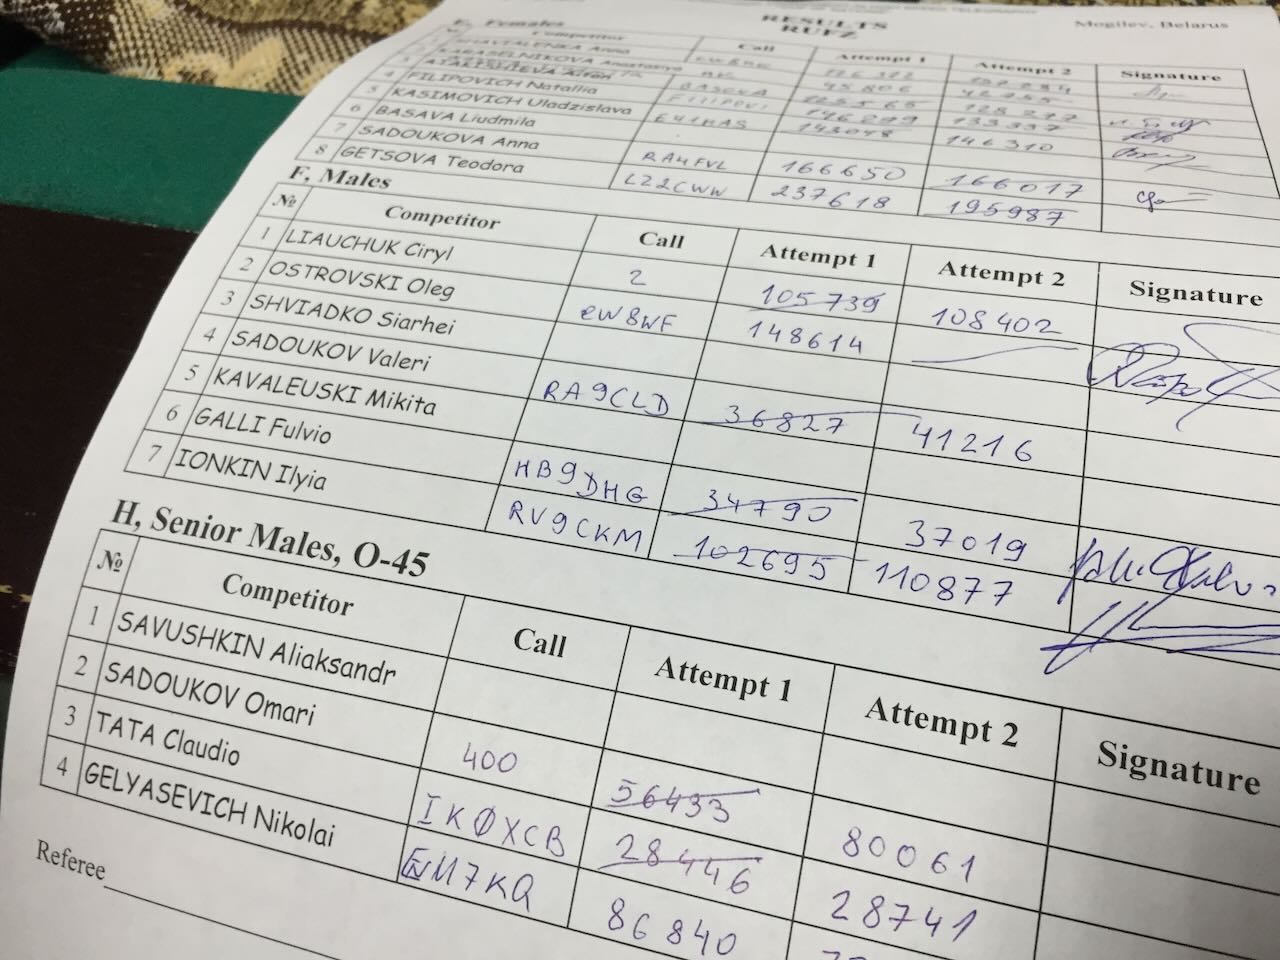 RESULTS
RUFZ
Mogilev, Belarus
E, Females
Competitor Call Attempt 1 Attempt 2 Signature
Anna
KARASELNIKOVA Anastasiya
4 FILIPOVICH Natallia
5 KASIMOVICH Uladzislava
6 BASAVA Liudmila 146310
7 SADOUKOVA Anna RA4FVL 166650 166017
8 GETSOVA Teodora LZ2CWW 237618 195987
F, Males
№ Competitor Call Attempt 1 Attempt 2 Signature
1 LIAUCHUK Ciryl 2 105739 108402
2 OSTROVSKI Oleg EW8WF 148614
3 SHVIADKO Siarhei
4 SADOUKOV Valeri RA9CLD 36827 41216
5 KAVALEUSKI Mikita
6 GALLI Fulvio HB9DHG 34790 37019
7 IONKIN Ilyia RV9CKM 102695 110877
H, Senior Males, O-45
№ Competitor Call Attempt 1 Attempt 2 Signature
1 SAVUSHKIN Aliaksandr
2 SADOUKOV Omari 400 56433 80061
3 TATA Claudio IKØXCB 28446 28741
4 GELYASEVICH Nikolai M7KQ 86840
Referee